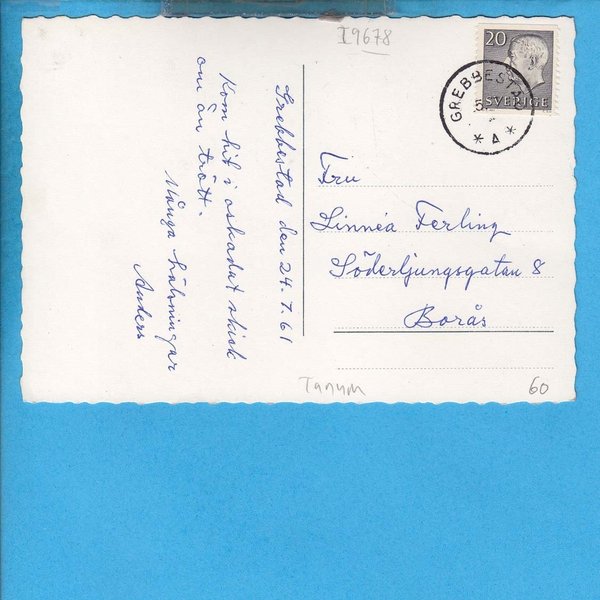 I9678
20
SVERIGE
GREBBESTAD
5
Grebbestad den 24.7.61
Kom hit i oskadat skick
om än trött.
Många hälsningar
Anders
Fru
Linnéa Ferling
Söderljungsgatan 8
Borås
Tanum
60